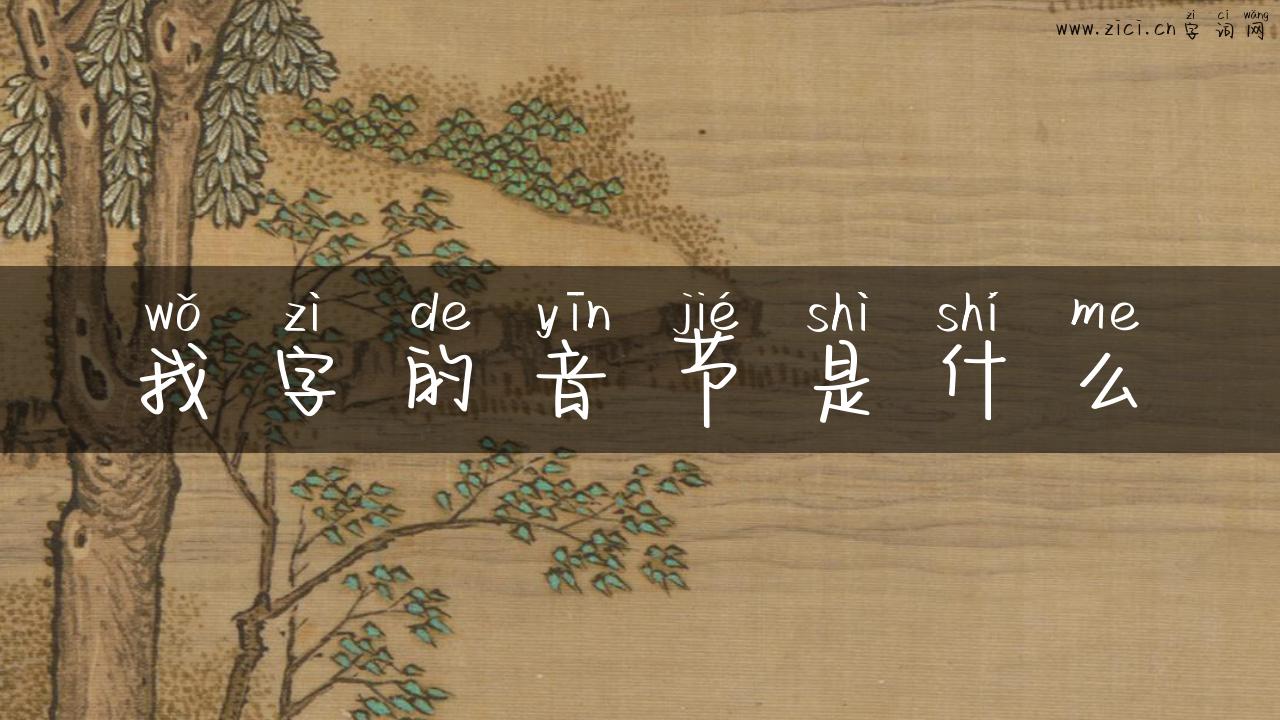 zì cí wǎng
www.zici.cn 字词网
wǒ zì de yīn jié shì shí me
我字的音节是什么